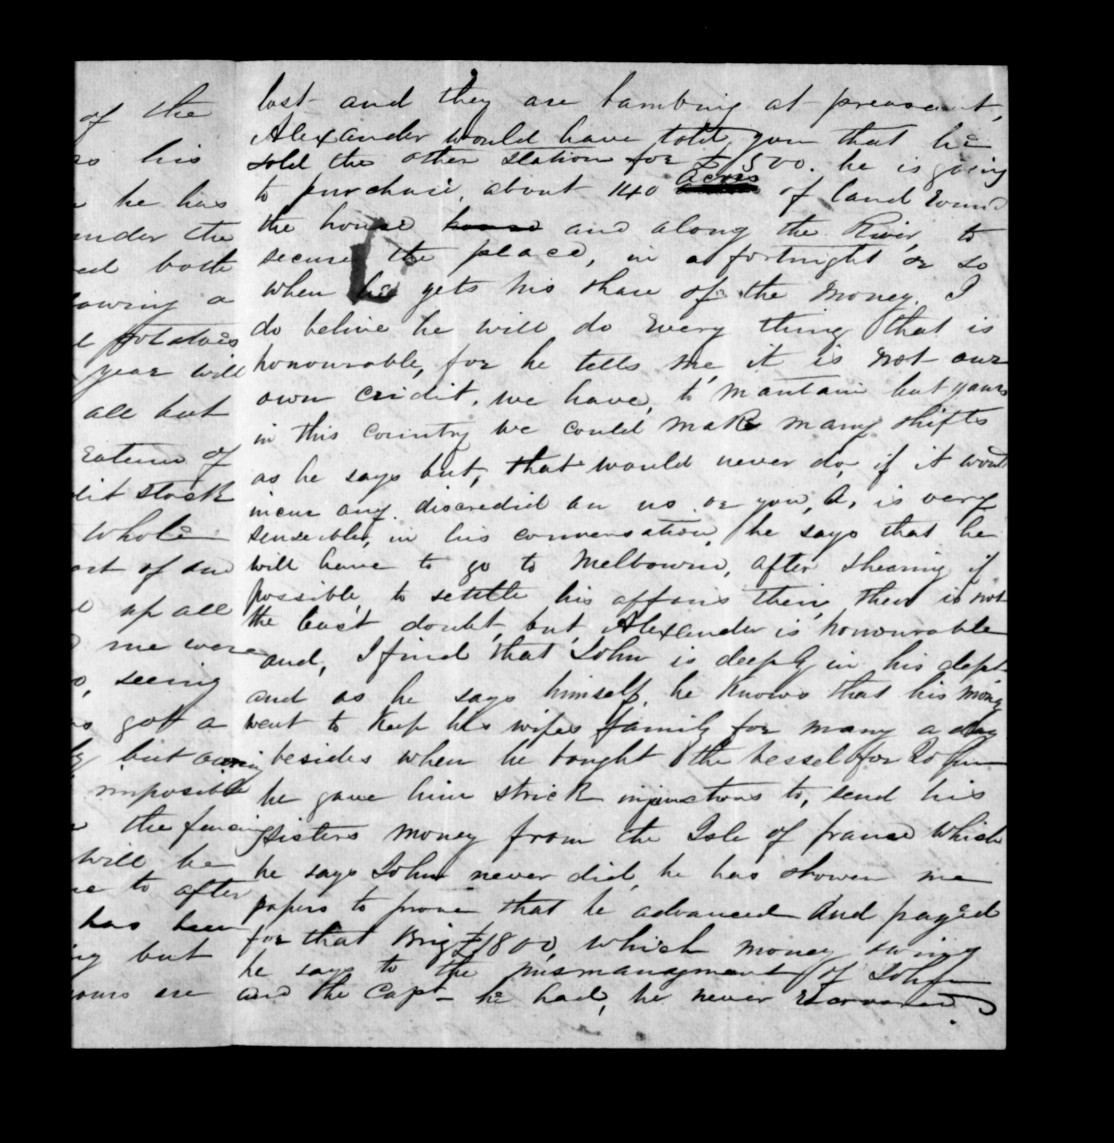 of the
his
he has
under the
both
owing a
potatoes
year will
all but
of
stock
whole
of
up all
me were
seeing
gott a
but owing
imposible
the fencing
will be
to after
has been
but
yours are
lost and they are lambing at preasent,
Alexander would have told you that he
sold the other station for £1500. he is going
to purchase about 140 acres of land round
the house house and along the River, to
secure the place, in a fortnight or so
when he gets his share of the money. I
do belive he will do every thing that is
honourable, for he tells me, it is not our
own credit, we have, to mantain but yours
in this country we could make many shifts
as he says but, that would never do, if it would
incur any discredid on us or you, A, is very
sensible, in his conversation, he says that he
will have to go to Melbourn, after shearing if
possible, to settle his affairs their, their is not
the least doubt, but, Alexander is honourable
and, I find that John is deeply in his dept
and as he says himself, he knows that his money
went to keep his wifes family for many a day
besides when he bought the vessel for John
he gave him strick injunctions to, send his
sisters money from the Isle of france which
he says John never did, he has showen me
papers to prove that he advanced and payed
for that Brig £1800, which money owing
he says to the mismanagment of John
and the Capt he had, he never recovered